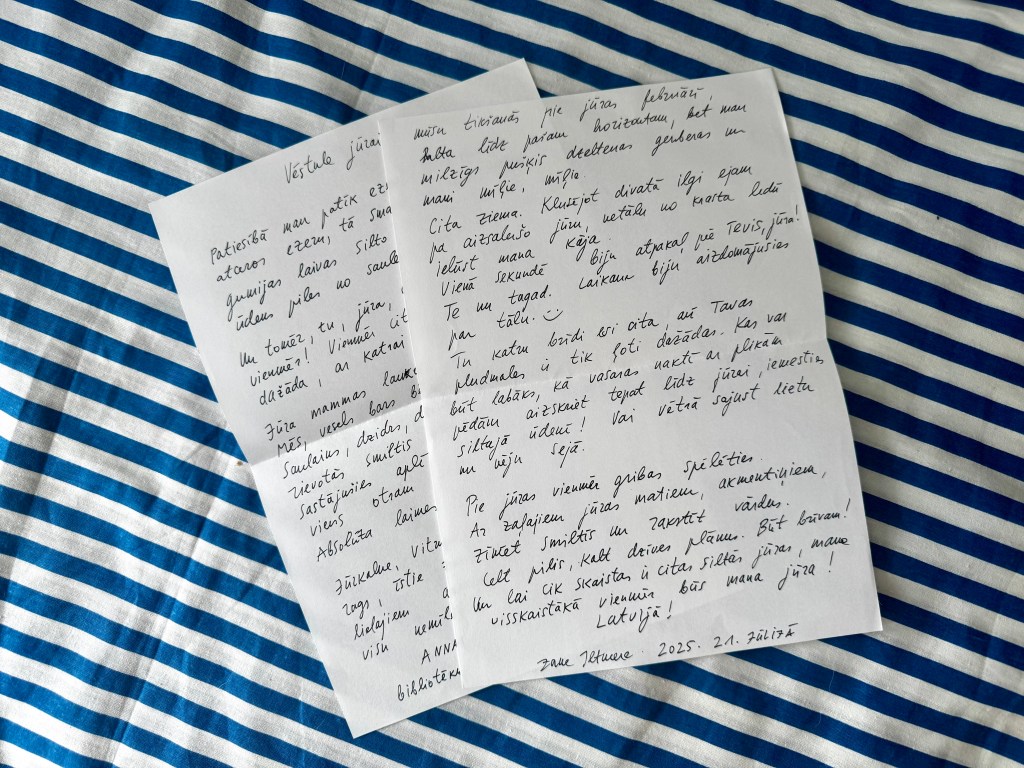 Vēstule jūrai
Patiesībā man patīk
ataros ezeru, tā
gumijas laivas silto
ūdens piles no
Un tomēr, tu, jūra,
vienmēr! Vienmēr
dažāda, ar katrai
Jūra mammas
Mēs, vesels bars
Saulains, dzidrs,
rievotās smiltis
sastājušies
viens otram
Absolūta laimes
Jūrkalne,
rags, īstie
lielajiem
visu
ANNA
mūsu tikšanās pie jūras februārī,
Balta līdz pašam horizontam, bet man
milzīgs pušķis dzeltenas gerberas un
mani mīļie, mīļie.
Cita ziema. Klusējot divatā ilgi ejam
pa aizsalušo jūru, netālu no krasta ledū
ielūst mana kāja.
Vienā sekundē biju atpakaļ pie Tevis, jūra!
Te un tagad. Laikam biju aizdomājusies
par tālu. ☺
Tu katru brīdi esi cita, arī Tavas
pludmales ir tik ļoti dažādas. Kas var
būt labāks, kā vasaras naktī ar plikām
pēdām aizskriet tepat līdz jūrai, iemesties
siltajā ūdenī! Vai vētrā sajust lietu
un vēju sejā.
Pie jūras vienmēr gribas spēlēties.
Ar zaļajiem jūras matiem, akmentiņiem,
zīmēt smiltīs un rakstīt vārdus.
Celt pilis, kalt dzīves plānus. Būt brīvam!
Un lai cik skaistas ir citas siltās jūras, mana
visskaistākā vienmēr būs mana jūra!
Latvijā!
2025. 21. JŪLIJĀ